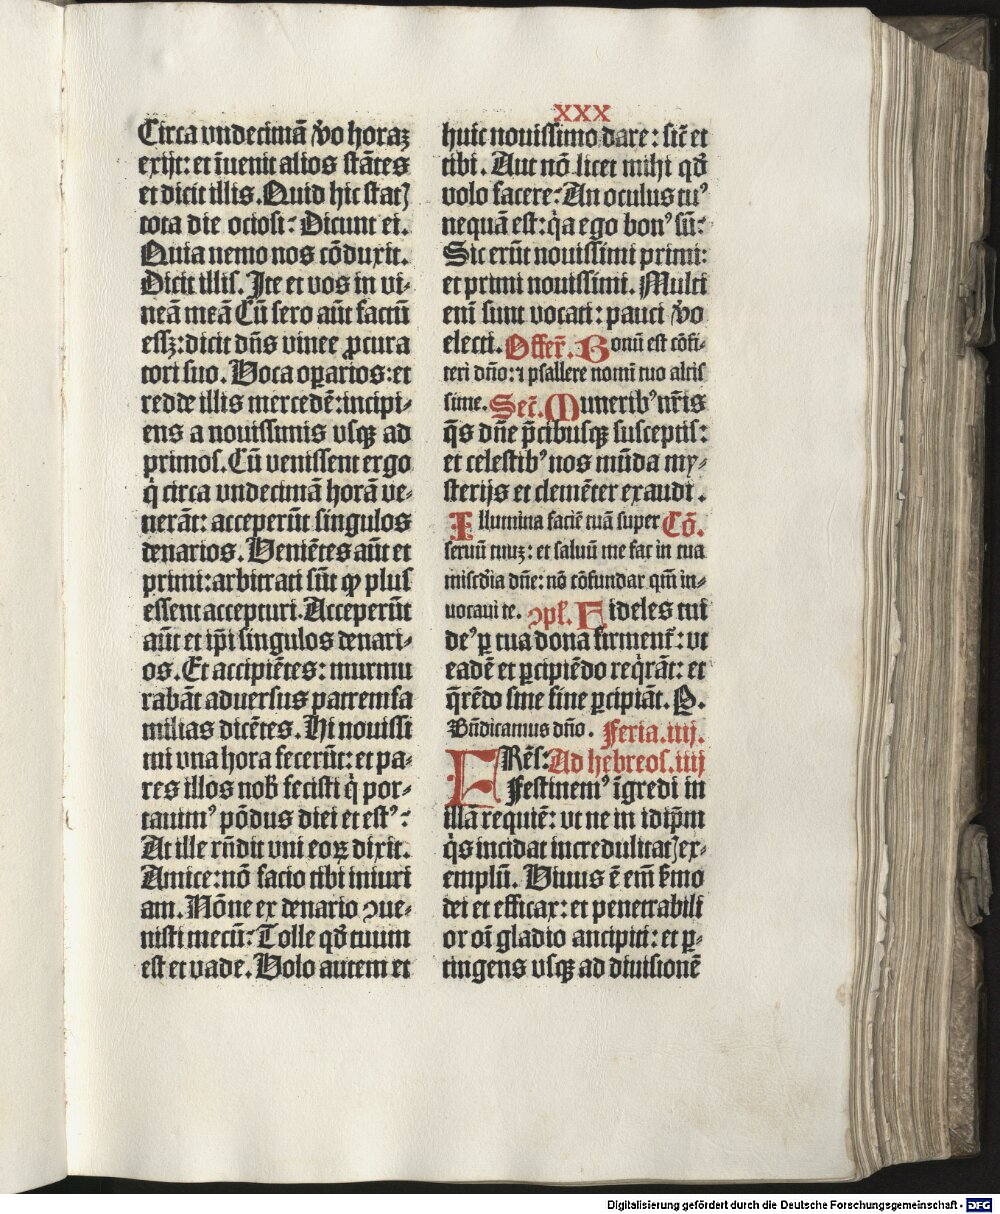 xxx
Circa vndecimā v̄o horaꝫ
exijt: et īuenit alios stātes
et dicit illis. Quid hic statꝭ
tota die ociosi: Dicunt ei.
Quia nemo nos cōduxit.
Dicit illis. Ite et vos in vi-
neā meā Cū sero aūt factū
essꝫ: dicit dn̄s vinee ꝓcura
tori suo. Voca oꝑarios: et
redde illis mercedē: incipi-
ens a nouissimis vsqꝫ ad
primos. Cū venissent ergo
q̇ circa vndecimā horā ve-
nerāt: acceperūt singulos
denarios. Veniētes aūt et
primi: arbitrati sūt ꝙ plus
essent accepturi. Acceperūt
aūt et ip̄i singulos denari-
os. Et accipiētes: murmu
rabāt aduersus patremfa
milias dicētes. Hi nouissi
mi vna hora fecerūt: et pa-
res illos nob̄ fecisti q̇ por-
tauimꝰ pōdus diei et estꝰ:
At ille rn̄dit vni eoꝝ dixit.
Amice: nō facio tibi iniuri
am. Nōne ex denario ꝯue-
nisti mecū: Tolle qd̄ tuum
est et vade. Volo autem et
huic nouissimo dare: sic̄ et
tibi. Aut nō licet mihi qd̄
volo facere: An oculus tuꝰ
nequā est: q̇a ego bonꝰ sū:
Sic erūt nouissimi primi:
et primi nouissimi. Multi
eni sunt vocati: pauci v̄o
electi. Offer̄. Bonū est cōfi-
teri dn̄o: ⁊ psallere nomi tuo altis
sime. Sec̄. Muneribꝰ nr̄is
q̄s dn̄e p̄cibusqꝫ susceptis:
et celestibꝰ nos mūda my-
sterijs et clemēter exaudi.
Illumina faciē tuā super Cō.
seruū tuuꝫ: et saluū me fac in tua
misc̄dia dn̄e: nō cōfundar qm̄ in-
uocaui te. ꝯpl̄. Fideles tui
deꝰ ꝑ tua dona firment̄: vt
eadē et ꝑcipiēdo req̇rāt: et
q̄rēdo sine fine ꝑcipiāt. P.
Bn̄dicamus dn̄o. Feria .iiij.
FRēs: Ad hebreos. iiij
Festinemꝰ īgredi in
illā requiē: vt ne in idip̄m
q̇s incidat incredulitatꝭ ex-
emplū. Viuus ē em̄ s̄mo
dei et efficax: et penetrabili
or oī gladio ancipiti: et ꝑ-
tingens vsqꝫ ad diuisionē
Digitalisierung gefördert durch die Deutsche Forschungsgemeinschaft - DFG